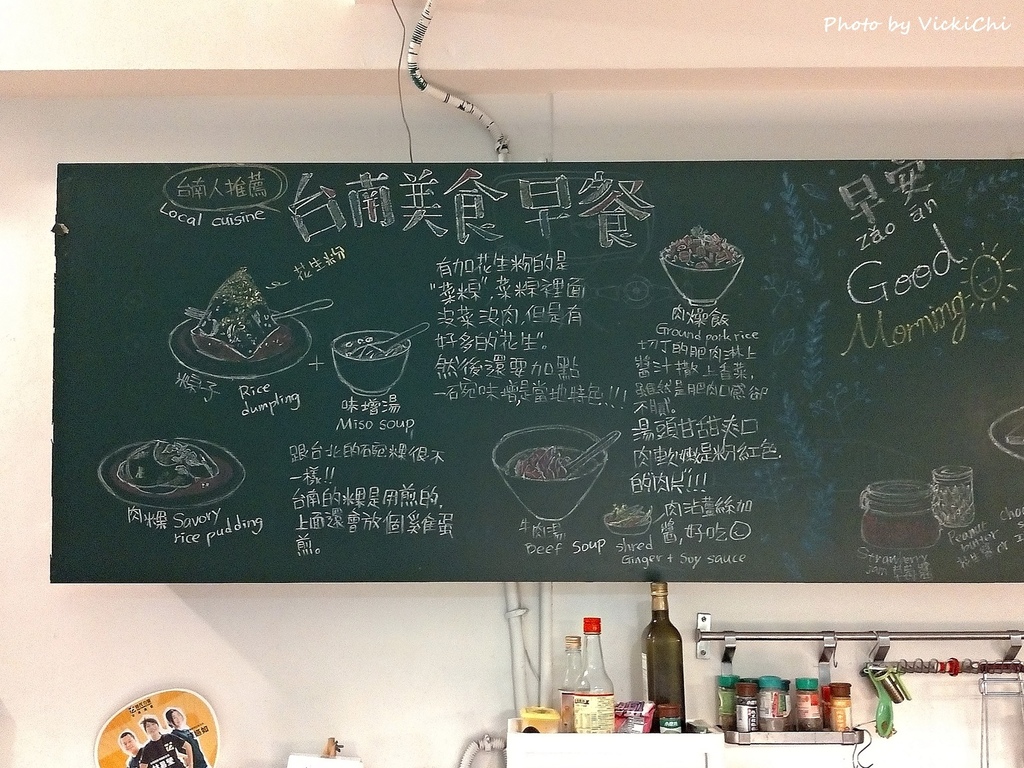 Photo by VickiChi
台南人推薦
Local cuisine
台南美食早餐
花生粉
粿子
Rice
dumpling
+
味增湯
Miso soup
有加花生粉的是
"菜粿",菜粿裡面
沒菜沒肉,但是有
好多的花生"。
然後還要加點
一碗味增是當地特色!!!
肉燥飯
Ground pork rice
切丁的肥肉淋上
醬汁撒上香菜,
雖然是肥肉口感卻
不膩。
肉粿 Savory
rice pudding
跟台北的碗粿很不
一樣!!
台南的粿是用煎的,
上面還會放個雞蛋
煎。
牛肉湯
Beef Soup
湯頭甘甜爽口
肉軟嫩是粉紅色
的肉片!!!
肉沾薑絲加
醬,好吃
shred
Ginger + Soy sauce
早安
zǎo ān
Good
Morning
Strawberry
jam 草莓醬
Peanut
butter